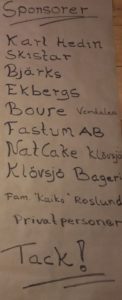 Sponsorer
Karl Hedin
Skistar
Bjärks
Ekbergs
Boure Vemdalen
Fastum AB
NatCake Klövsjö
Klövsjö Bageri
Fam. "Kaiks" Roslund
Privatpersoner
Tack!